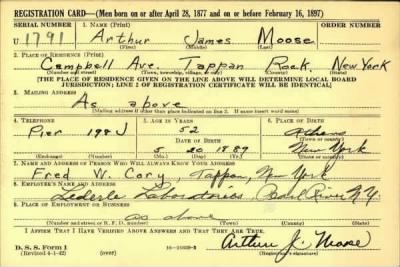 REGISTRATION CARD—(Men born on or after April 28, 1877 and on or before February 16, 1897)
SERIAL NUMBER 1. NAME (Print)
U 1791 Arthur James Moose
2. PLACE OF RESIDENCE (Print)
Campbell Ave. Tappan Rock. New York
(Number and street) (Town, township, village, or city) (County) (State)
[THE PLACE OF RESIDENCE GIVEN ON THE LINE ABOVE WILL DETERMINE LOCAL BOARD
JURISDICTION; LINE 2 OF REGISTRATION CERTIFICATE WILL BE IDENTICAL]
3. MAILING ADDRESS
As above
[Mailing address if other than place indicated on line 2. If same insert word same]
4. TELEPHONE 5. AGE IN YEARS 6. PLACE OF BIRTH
Pier 198J 52 Athens
DATE OF BIRTH (Town or county)
5 20 1889 New York
(Exchange) (Number) (Mo.) (Day) (Yr.) (State or country)
7. NAME AND ADDRESS OF PERSON WHO WILL ALWAYS KNOW YOUR ADDRESS
Fred W. Cory, Tappan, New York
8. EMPLOYER'S NAME AND ADDRESS
Lederle Laboratories, Pearl River N.Y.
9. PLACE OF EMPLOYMENT OR BUSINESS
as above
(Number and street or R. F. D. number) (Town) (County) (State)
I AFFIRM THAT I HAVE VERIFIED ABOVE ANSWERS AND THAT THEY ARE TRUE.
D. S. S. Form 1
(Revised 4-1-42) (over) Arthur J. Moose
(Registrant's signature)